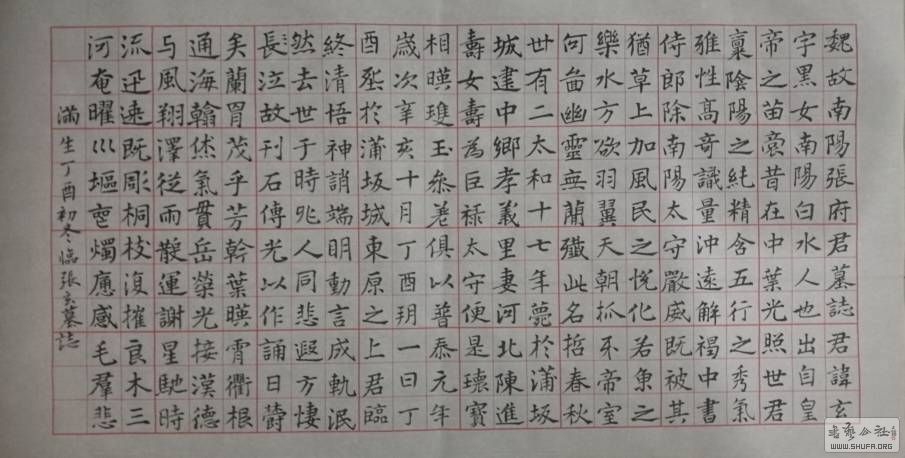 魏故南陽張府君墓誌君諱玄
字黑女南陽白水人也出自皇
帝之苗裔昔在中葉光照世君
稟陰陽之純精含五行之秀氣
雅性高奇識量沖遠解褐中書
侍郎除南陽太守嚴威既被其
猶草上加風民之悅化若魚之
樂水方欲羽翼天朝抓牙帝室
何啚幽靈無蘭殲此名哲春秋
卅有二太和十七年薨於蒲坂
城建中鄉孝義里妻河北陳進
壽女壽為巨祿太守便是瓌寶
相暎瓊玉參差俱以普泰元年
歲次辛亥十月丁酉朔一日丁
酉葬於蒲坂城東原之上君臨
終清悟神誚端明動言成軌泯
然去世于時兆人同悲遐方悽
長泣故刊石傳光以作誦曰欝
矣蘭胄茂乎芳幹葉暎霄衢根
通海翰烋氣貫岳榮光接漢德
与風翔澤從雨散運謝星馳時
流迅速既彫桐枝復摧良木三
河奄曜巛塸喪燭痛感毛羣悲
滿生丁酉初冬臨張玄墓誌
書藝公社
WWW.SHUFA.ORG